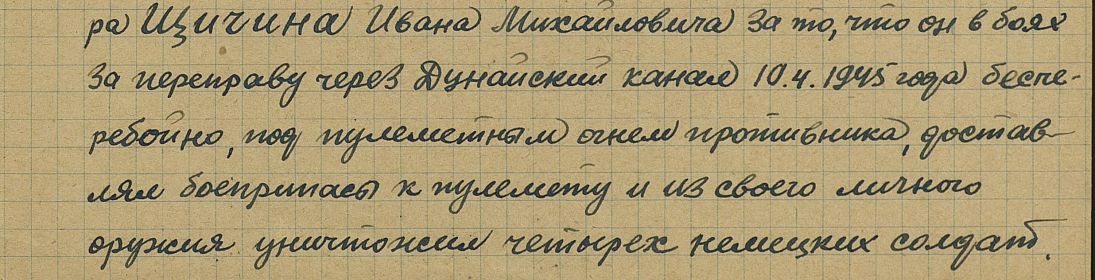 ра Щичина Ивана Михайловича за то, что он в боях
за переправу через Дунайский канал 10.4.1945 года беспе-
ребойно, под пулеметным огнем противника, достав-
лял боеприпасы к пулемету и из своего личного
оружия уничтожил четырех немецких солдат.